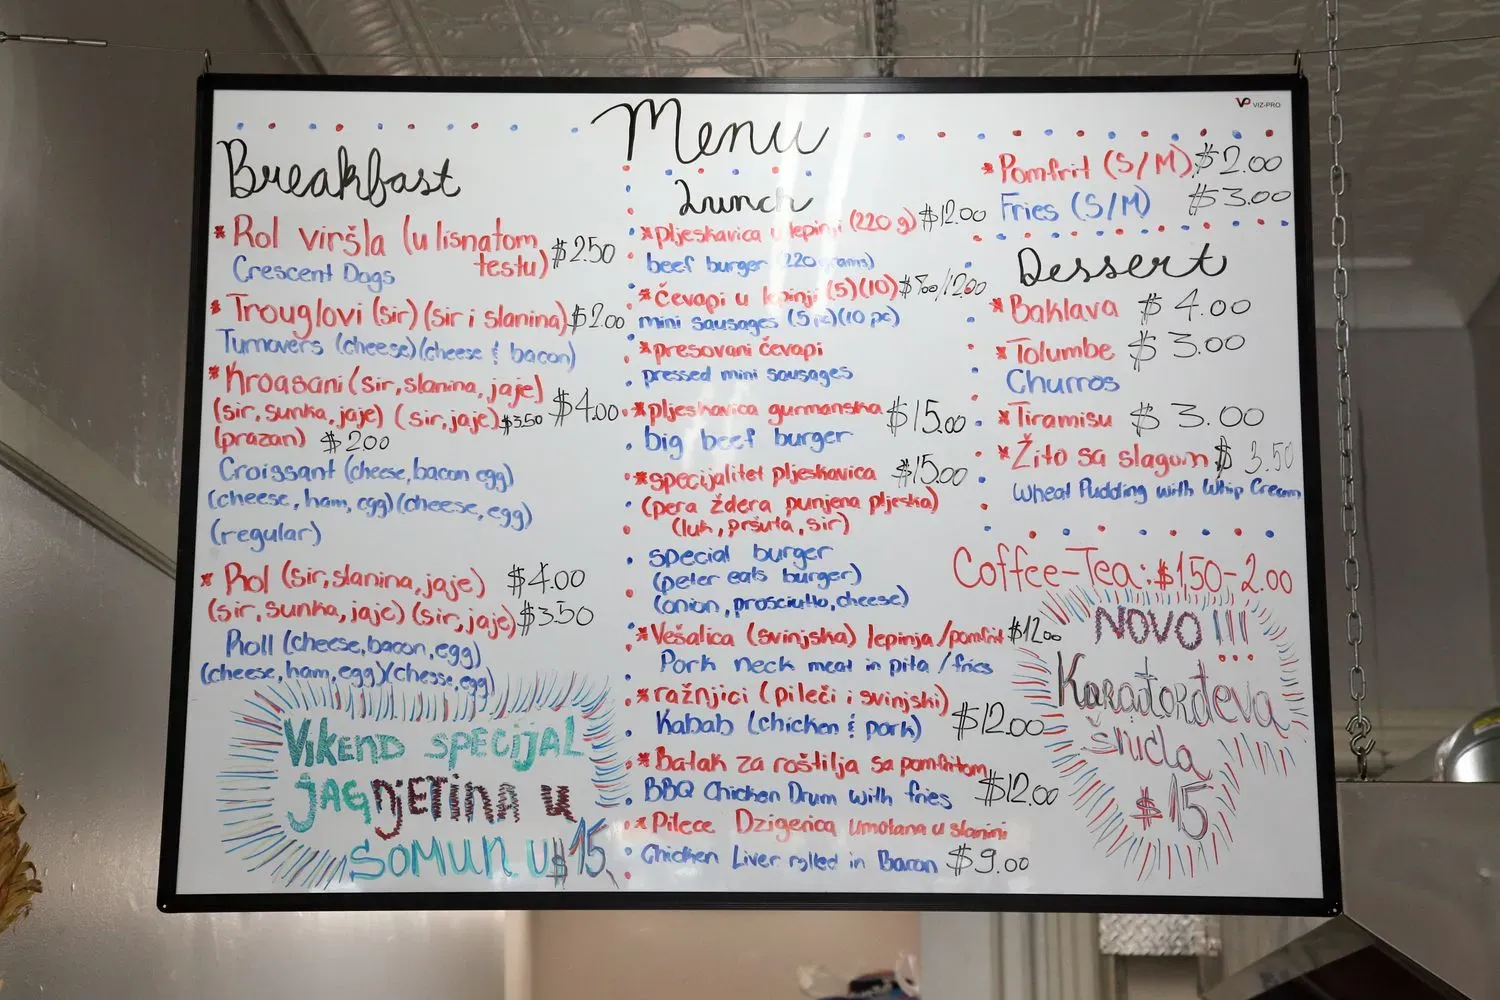 VP VIZ-PRO
Menu
Breakfast
* Rol viršla (u lisnatom testu) $2.50
Crescent Dogs
* Trouglovi (sir)(sir i slanina) $2.00
Turnovers (cheese)(cheese & bacon)
* Kroasani (sir, slanina, jaje) $4.00
(sir, sunka, jaje) (sir, jaje) $3.50
(prazan) $2.00
Croissant (cheese, bacon egg)
(cheese, ham, egg)(cheese, egg)
(regular)
* Rol (sir, slanina, jaje) $4.00
(sir, sunka, jaje) (sir, jaje) $3.50
Roll (cheese, bacon, egg)
(cheese, ham, egg)(cheese, egg)
VIKEND SPECIJAL
JAGNJETINA U
SOMUN U $15.
Lunch
* pljeskavica u lepinji (220 g) $12.00
beef burger (220 grams)
* čevapi u lepinji (5)(10) /12.00
mini sausages (5 pc)(10 pc)
* presovani čevapi
pressed mini sausages
* pljeskavica gurmanska $15.00
big beef burger
* specijalitet pljeskavica $15.00
(pera ždera punjena pljeska)
(luk, pršuta, sir)
special burger
(peter eats burger)
(onion, prosciutto, cheese)
* Vešalica (svinjska) lepinja/pomfrit $12.00
Pork neck meat in pita / fries
* ražnjici (pileči i svinjski)
Kabab (chicken & pork) $12.00
* Batak za roštilja sa pomfritom
BBQ Chicken Drum with fries $12.00
* Pilece Dzigerica umotana u slanini
Chicken Liver rolled in Bacon $9.00
* Pomfrit (S/M) $2.00
Fries (S/M) $3.00
Dessert
* Baklava $4.00
* Tolumbe $3.00
Churros
* Tiramisu $3.00
* Žito sa slagom $3.50
Wheat Pudding with Whip Cream
Coffee-Tea: $1.50-2.00
NOVO !!!
Karađorđeva
šnicla
$15